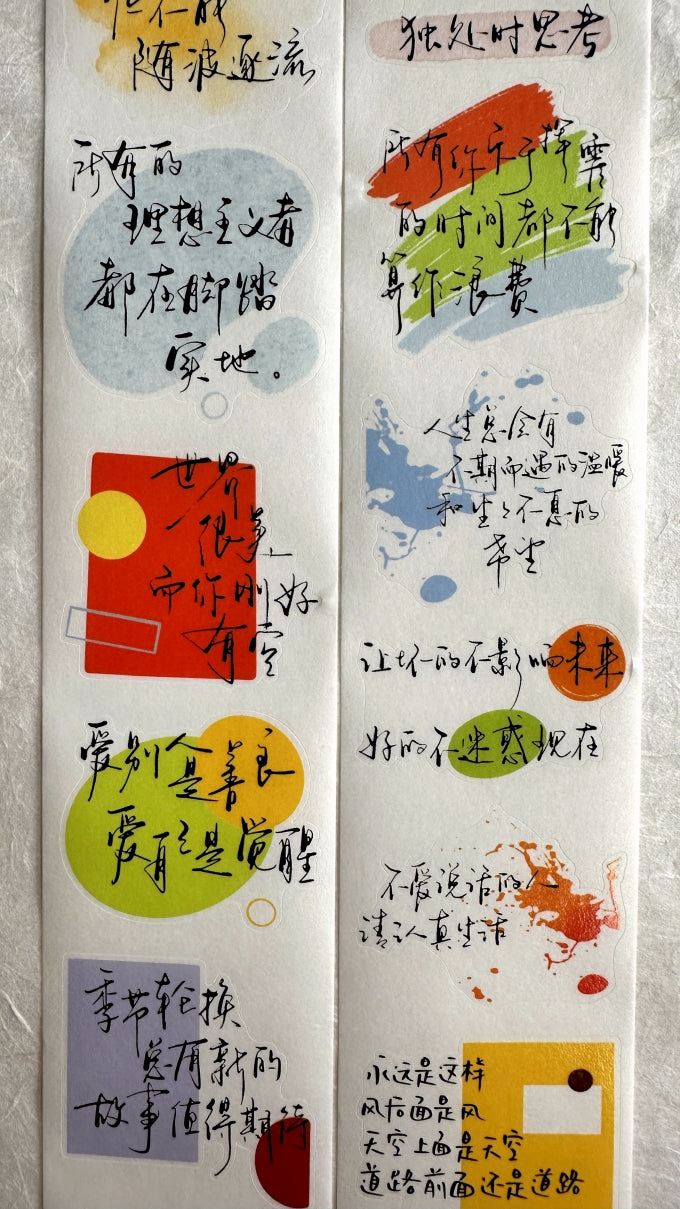 但不能
随波逐流
所有的
理想主义者
都在脚踏
实地。
世界
很美
而你刚好
有空
爱别人是善良
爱自己是觉醒
季节轮换
总有新的
故事值得期待
独处时思考
所有你乐于挥霍
的时间都不能
算作浪费
人生总会有
不期而遇的温暖
和生生不息的
希望
让坏的不影响未来
好的不迷惑现在
不爱说话的人
请认真生活
永远是这样
风后面是风
天空上面是天空
道路前面还是道路